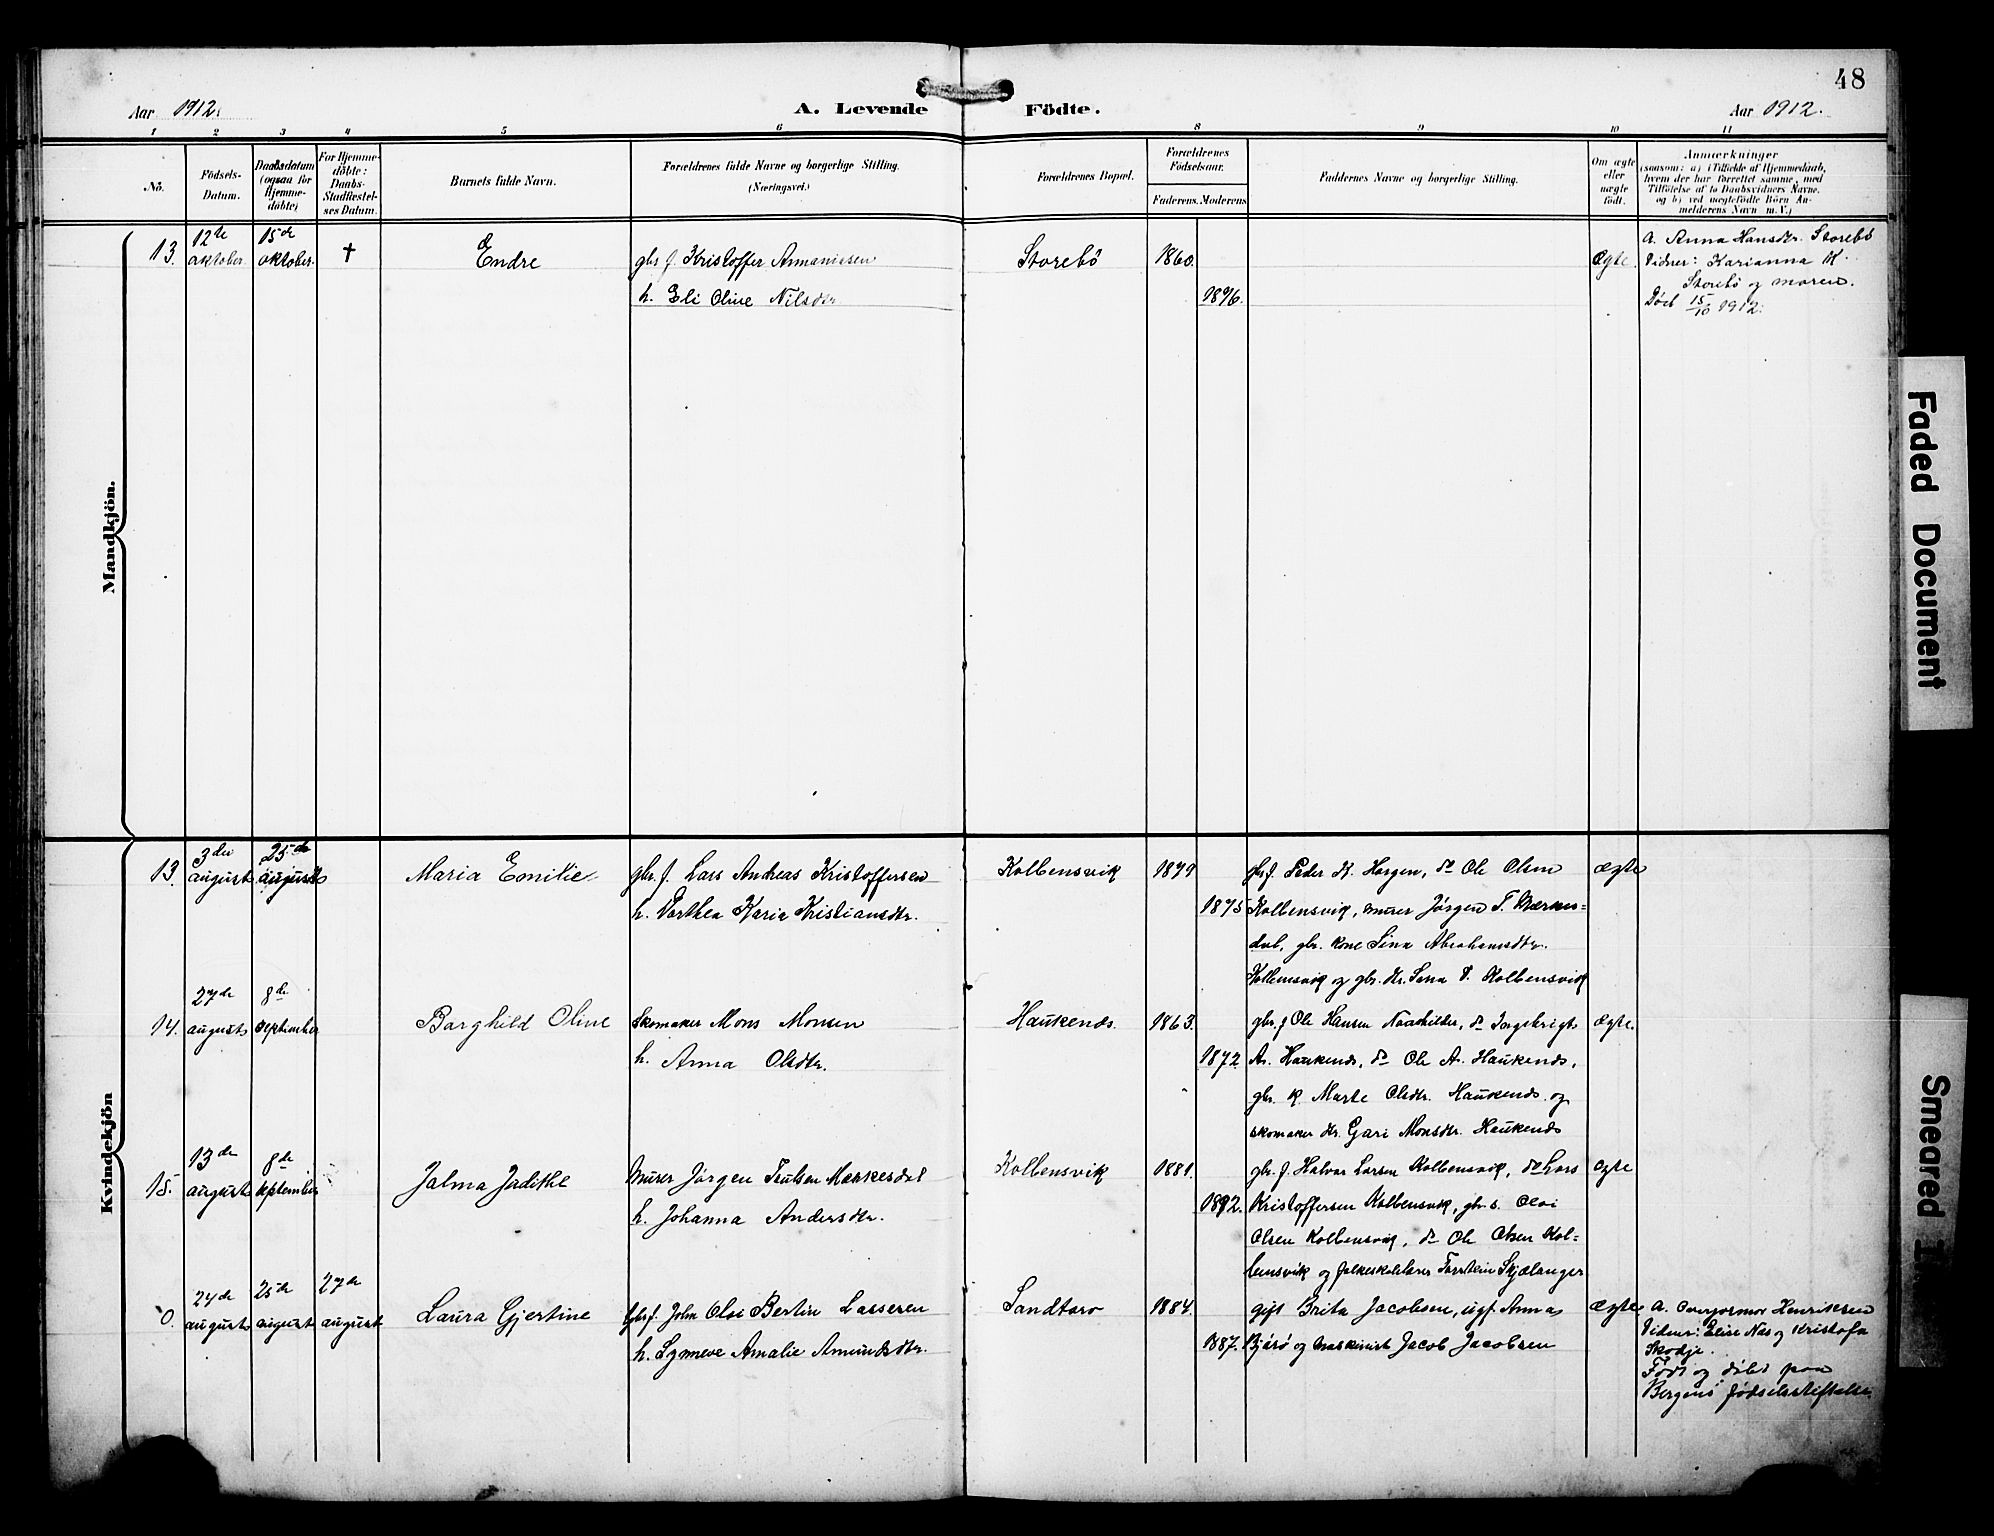 48
Aar 1912.
A. Levende Födte.
Aar 1912.
1 2 3 4 5 6 8 9 10 11
No.
Födsels-Datum.
Daabsdatum (ogsaa for Hjemme-döbte)
For Hjemme-döbte: Daabs-Stadfæstel-ses Datum.
Barnets fulde Navn.
Forældrenes fulde Navne og borgerlige Stilling.
(Næringsvei.)
Forældrenes Bopæl.
Forældrenes Födselsaar.
Faderens. Moderens
Faddernes Navne og borgerlige Stilling.
Om ægte eller uægte födt.
Anmærkninger
(saasom: a) i Tilfælde af Hjemmedaab,
hvem der har forrettet samme, med
Tilföielse af to Daabsvidners Navne,
og b) ved uægtefödte Börn An-
melderens Navn m. V.)
Mandkjön.
13. 12te oktober 15de oktober. † Endre
gbr. f. Kristoffer Annaniassen
h. Eli Oline Nilsdtr.
Storebö 1860. 1876. ægte.
a. Anna Hansdtr. Storebö
Vidner: Karianna K.
Storebö og moren.
Död 15/10 1912.
Kvindekjön
13. 3die august 25de august Maria Emilie
gbr. f. Lars Andreas Kristoffersen
h. Dorthea Karia Kristiansdtr.
Kolbensvik 1879 1875
gbr. f. Peder K. Horgen, do Ole Olsen
Kolbensvik, murer Jørgen T.
dal, gbr. kone Sina Abrahamsdtr.
Kolbensvik og gbr. dtr. Lena T. Kolbensvik
ægte
14. 27de august 8de september Borghild Oline
Skomaker Mons Monsen
h. Anna Olsdtr.
Haukenæs. 1863. 1872
gbr. f Ole Hansen do Ingebrigt
A. Haukenæs, do Ole A. Haukenæs,
gbr. k. Marte Olsdtr. Haukenæs og
skomaker dtr. Gari Monsdtr. Haukenæs
ægte.
15. 13de august 8de september Jalma Jadithe
Murer Jørgen Paulsen
h. Johanna Andersdtr.
Kolbensvik 1881. 1892.
gbr. f. Halvor Larsen Kolbensvik, do Lars
Kristoffersen Kolbensvik, gbr. s. Olai
Olsen Kolbensvik, do Ole Olsen Kol-
bensvik og folkeskolelærer Torstein Skjælanger
ægte
0. 24de august 25de august 27de august Laura Gjertine
Gbr. f. John Olai Bertin Lassesen
h. Synneve Amalie Amundsdtr.
Sandtorv 1884. 1887.
gift Brita Jacobsen, ugf. Anna
Bjørø og maskinist Jacob Jacobsen
ægte
a. Overjormor Henriksen
Vidner: Elise Næs og Kristofa
Skodje.
Födt og döbt paa
Bergens fødselsstiftelse.
Faded Document
Smeared